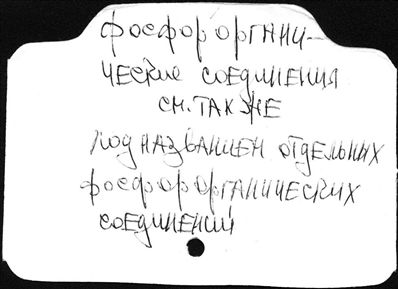 фосфороргани-
ческие соединения
см. также
под названием отдельных
фосфорорганических
соединений